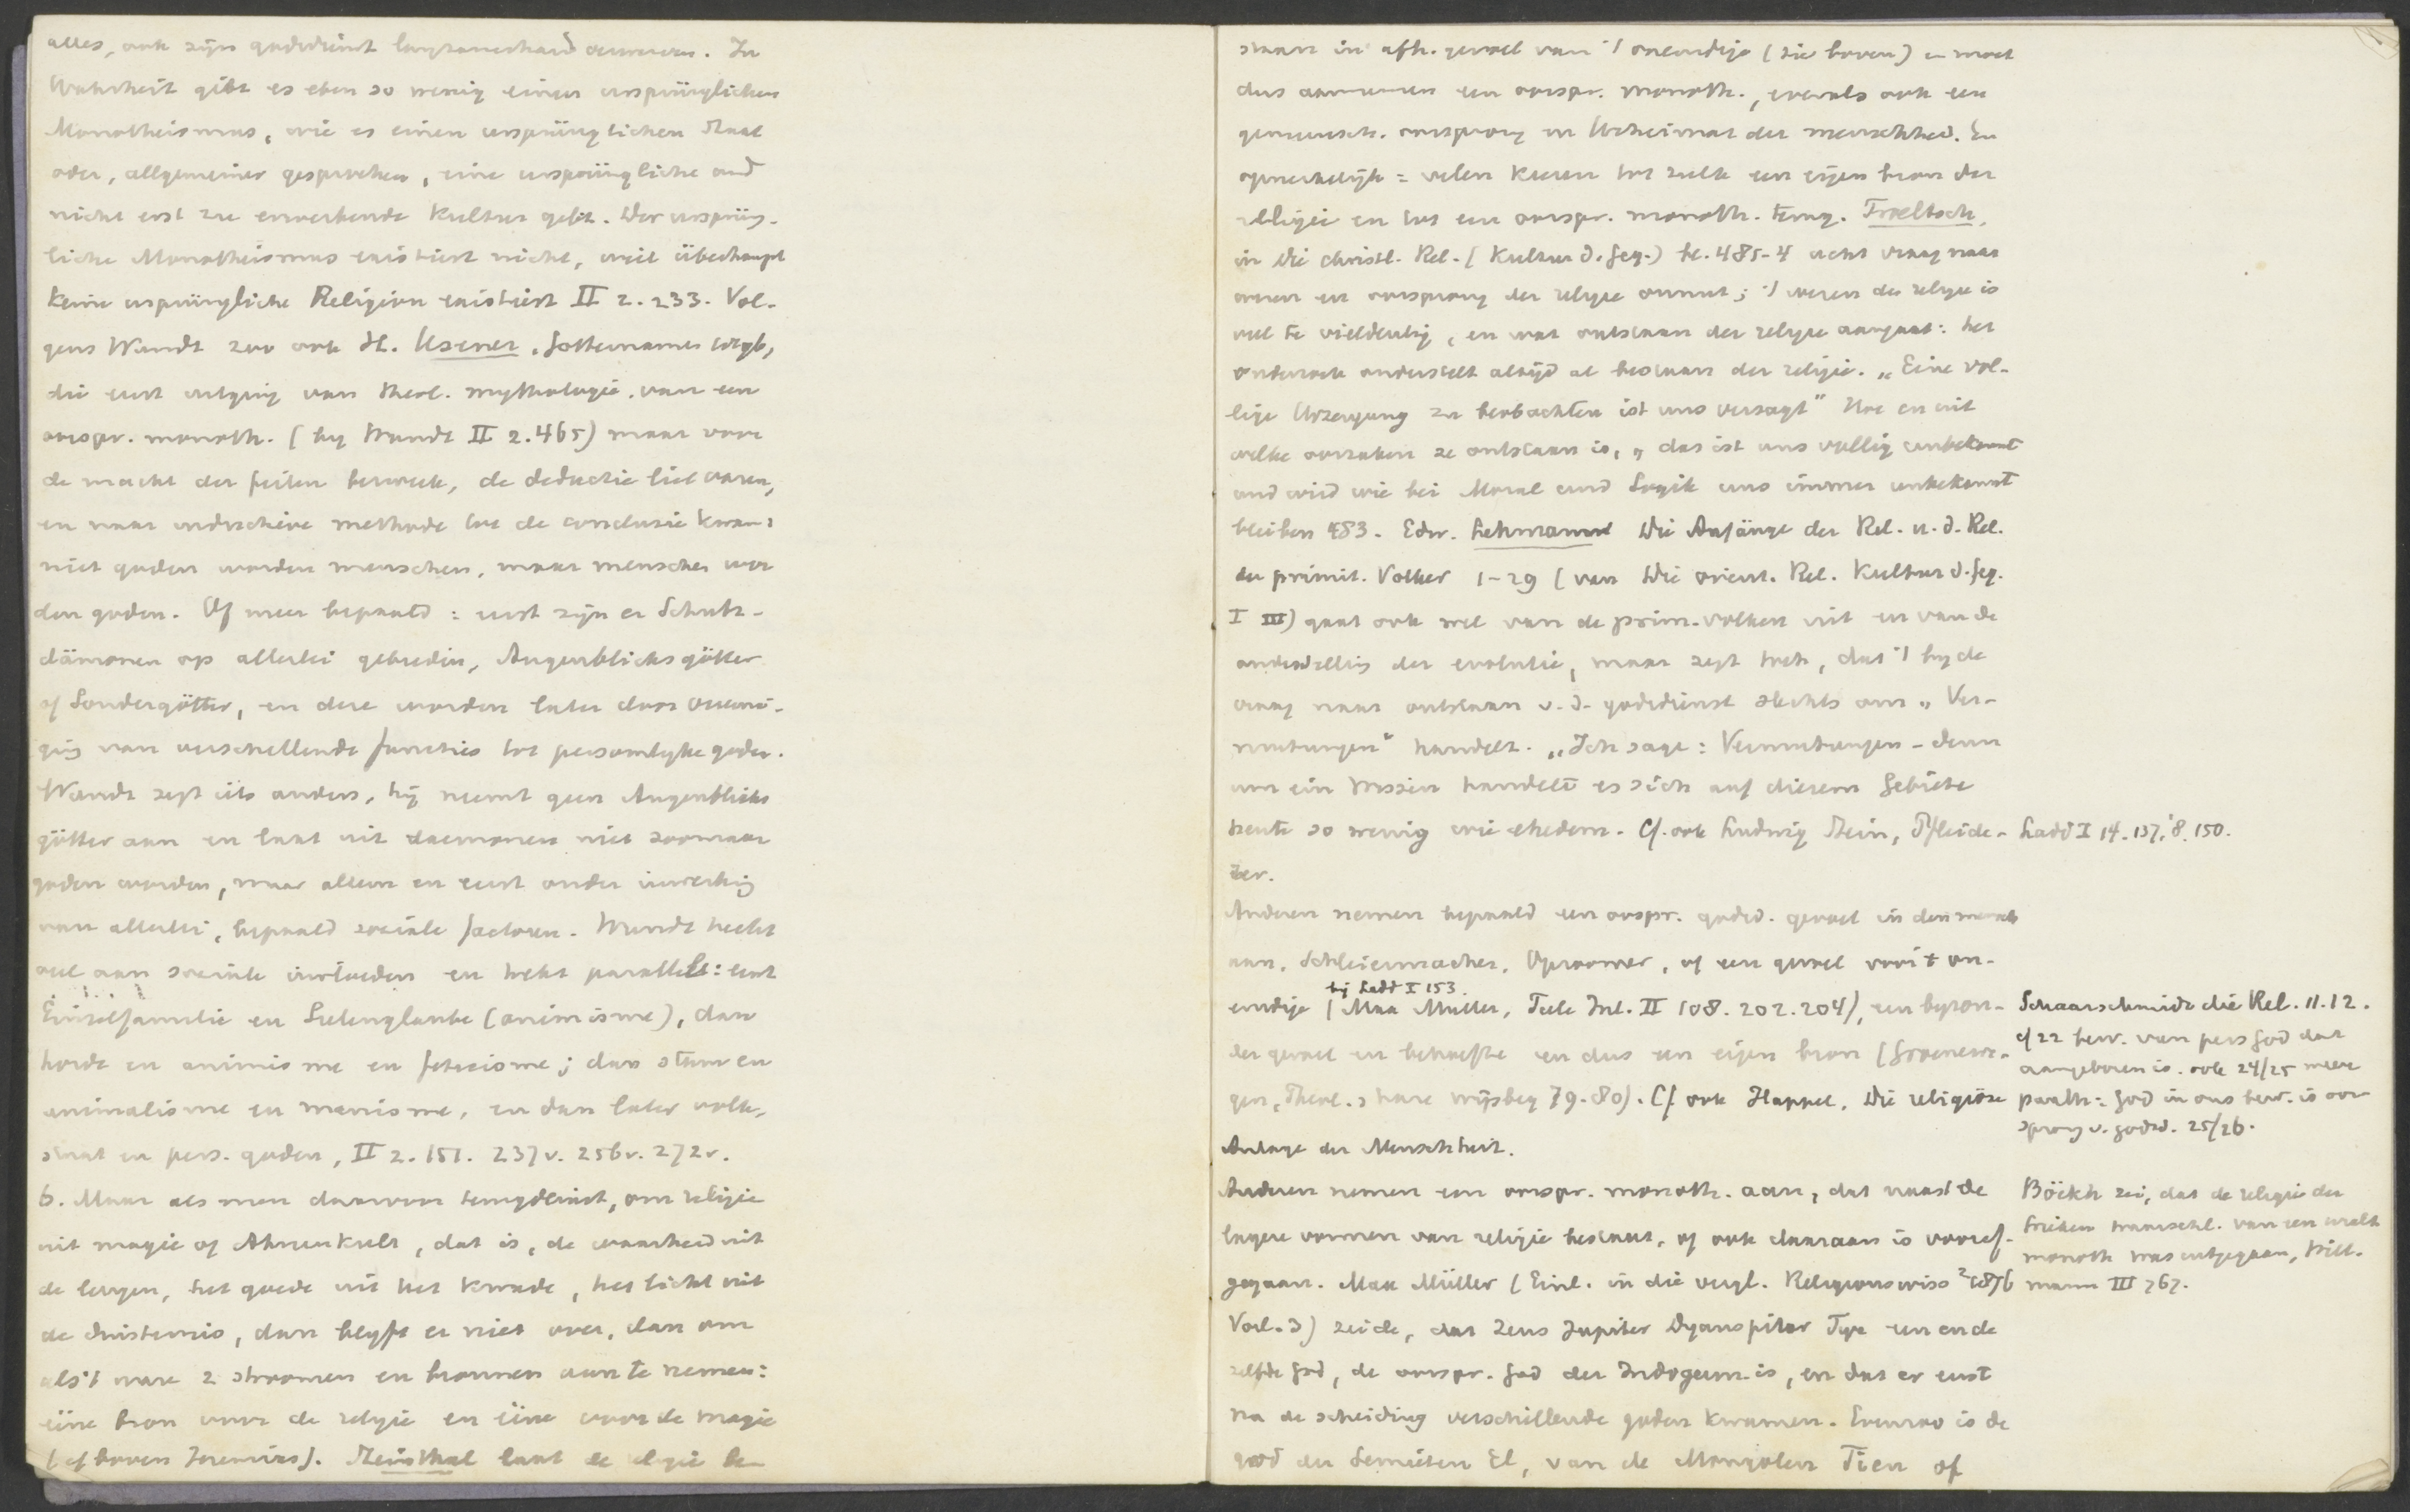 alles, ook zijn godsdienst langzamerhand verworven. In
Wahrheit gibt es eben so wenig einen ursprünglichen
Monotheismus, wie es einen ursprünglichen Staat
oder, allgemeiner gesprochen, eine ursprüngliche und
nicht erst zu erwerbende Kultur gibt. Der ursprüng-
liche Monotheismus existiert nicht, weil überhaupt
keine ursprüngliche Religion existiert II 2. 233. Vol-
gens Wundt zoo ook H. Usener, Götternamen
die eerst uitging van theol. mythologie, van een
oorspr. monoth. (by Wundt II 2. 465) maar voor
de macht der feiten bezweek, de deductie liet varen,
en naar inductieve methode tot de conclusie kwam:
niet goden worden menschen, maar menschen wor
den goden. Of meer bepaald: eerst zijn er Schutz-
dämonen op allerlei gebieden, Augenblicksgötter
of Sondergötter, en deze worden later door vereeni-
ging van verschillende functies tot persoonlyke goden.
Wundt zegt iets anders, hij neemt geen Augenblicks
götter aan en laat uit daemonen niet zoomaar
goden worden, maar alleen en eerst onder inwerking
van allerlei, bepaald sociale factoren. Wundt hecht
veel aan sociale invloeden en trekt parallel: eerst
Einzelfamilie en Seelenglaube (animisme), dan
horde en animisme en feticisme; dan stam en
animalisme en manisme, en dan later volk,
staat en pers. goden, II 2. 151. 237v. 256v. 272v.
b. Maar als men daarvoor terugdeinst, om religie
uit magie of Ahnenkult, dat is, de waarheid uit
de leugen, het goede uit het kwade, het licht uit
de duisternis, dan blyft er niet over, dan om
als 't ware 2 stroomen en bronnen aan te nemen:
eéne bron voor de religie en eéne voor de magie
(cf boven Jeremias). Steinthal laat de religie be
staan in afh. gevoel van 't oneindige (zie boven) en moet
dus aannemen een oorspr. monoth., evenals ook een
gemeensch. oorsprong en Urheimat der menschheid. En
opmerkelijk = velen keeren tot zulk een eigen bron der
religie en tot een oorspr. monoth. terug. Troeltsch,
in Die christl. Rel. (Kultur d. Geg.) bl. 485-4 acht vraag naar
wezen en oorsprong der religie onnut; 't wezen der religie is
veel te vieldeutig, en wat ontstaan der religie aangaat: het
onderzoek onderstelt altijd al bestaan der religie. „Eine völ-
lige Urzeugung zu beobachten ist uns versagt" Hoe en uit
welke oorzaken ze ontstaan is, „ das ist uns völlig unbekannt
und wird wie bei Moral und Logik uns immer unbekannt
bleiben 483. Edw. Lehmann Die Anfänge der Rel. u. d. Rel.
der primit. Völker 1-29 (van Die orient. Rel. Kultur d. Geg.
I III) gaat ook wel van de prim. volken uit en van de
onderstelling der evolutie, maar zegt toch, dat 't by de
vraag naar ontstaan v. d. godsdienst slechts om „ Ver-
mutungen" handelt. „Ich sage: Vermutungen - denn
um ein Wissen handelt es sich auf diesem Gebiete
heute so wenig wie ehedem. Cf. ook Ludwig Stein, Pfleide-
rer.
Ladd I 14. 137, '8. 150.
Anderen nemen bepaald een oorspr. godsd. gevoel in den mensch
aan, Schleiermacher, Opzoomer, of een gevoel voor 't on-
eindige (Max Müller, Tiele Inl. II 108. 202. 204), een byzon-
bij Ladd I 153.
der gevoel en behoefte en dus een eigen bron (Groenewe-
gen, Theol. en hare wijsbeg 79-80). Cf. ook Happel, Die religiöse
Anlage der Menschheit.
Schaarschmidt die Rel. 11. 12.
cf 22 bew. van pers God dat
aangeboren is. ook 24/25 meer
panth: God in ons bew. is oor
sprong v. godsd. 25/26.
Anderen nemen een oorspr. monoth. aan, dat naast de
lagere vormen van religie bestaat, of ook daaraan is vooraf-
gegaan. Max Müller (Einl. in die vergl. Religionswiss ²1876
Vorl. 3) zeide, dat Zeus Jupiter Dyauspitar Tyr een en de
zelfde god, de oorspr. god der Indogerm. is, en dat er eerst
na de scheiding verschillende goden kwamen. Evenzoo is de
god der Semieten El, van de Mongolen Tien of
Böckh zei, dat de religie der
Grieken waarschl. van een uralt
monoth was uitgegaan, Dill-
mann III 767.